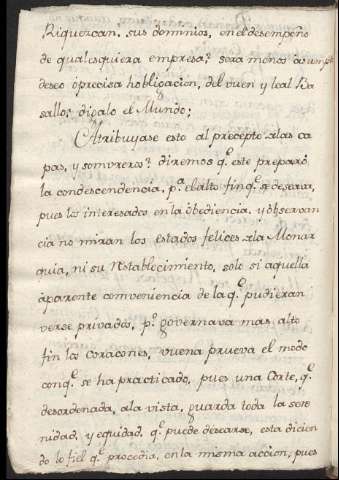 Riquezcan. sus dominios, en el desempeño
de qualesquiera empresa? sera menos asumpto
deseo ó precisa hobligacion, del vuen y leal Ba
sallo? digalo el Mundo;
Atribuyase esto al precepto xlas ca
pas, y somvreros? diremos q.ᵉ este preparó
la condescendencia, p.ᵃ el alto fin q.ᵉ se deseava,
pues los interesados en la óbediencia, y observan
cia no miran los estados felices xla Monar
quia, ni su Restablecimiento, solo si aquella
áparente combeniencia de la q.ᵉ pudieran
verse privados, p.ᵒ governava mas alto
fin los Corazones, vuena prueva el modo
con q.ᵉ se ha practicado, pues una Corte, q.ᵉ
desordenada, ala vista, guarda toda la sere
nidad, y equidad, q.ᵉ puede desearse, esta dicien
do lo fiel q.ᵉ procedia, en la misma accion, pues